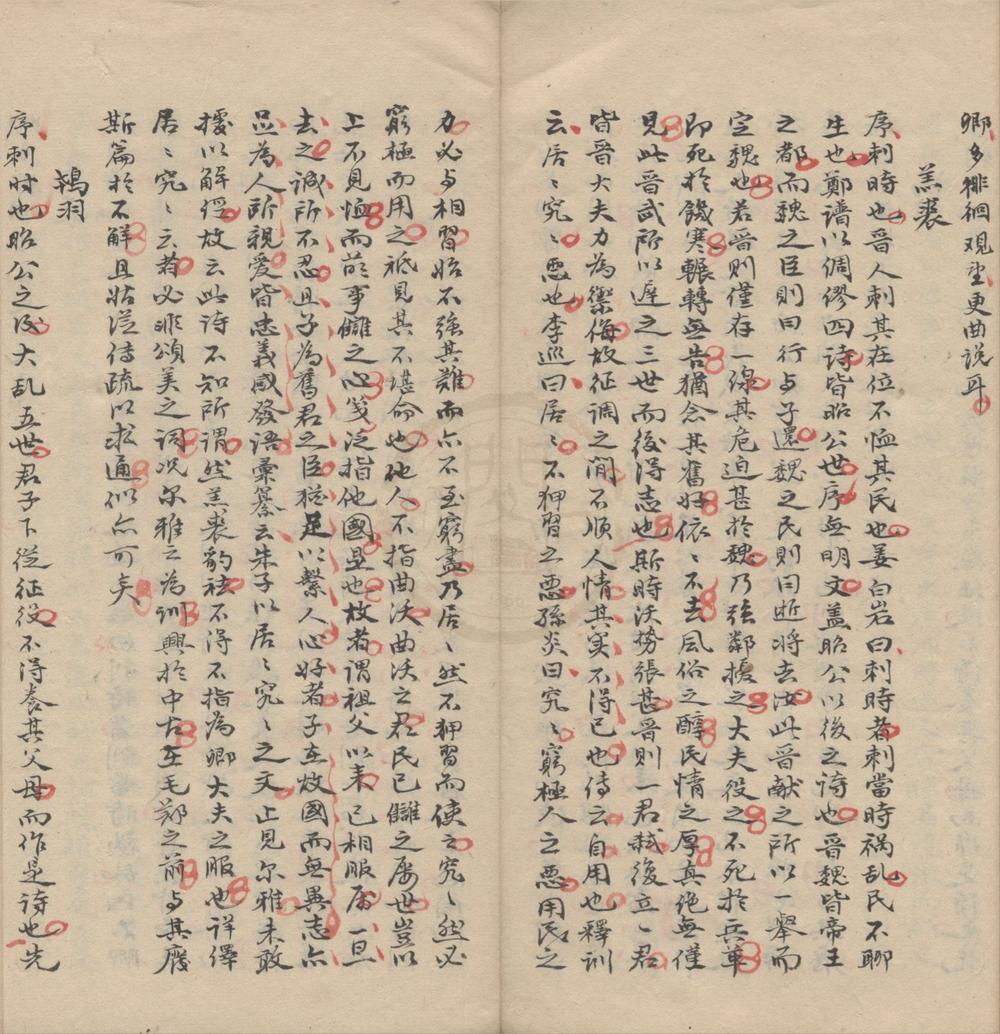 卿多徘徊观望更曲说耳
羔裘
序刺時也晋人刺其在位不恤其民也姜白岩曰刺時者刺當時祸乱民不聊
生也鄭谱以倜僇四诗皆昭公世序無明文盖昭公以後之诗也晋魏皆帝王
之都而魏之臣則曰行与子還魏之民則曰逝将去汝此晋献之所以一舉而
空魏也若晋則僅存一線其危迫甚於魏乃強鄰掳之大夫役之不死於兵車
即死於饑寒輾轉無告猶念其舊好依〻不去風俗之醇民情之厚真绝無僅
見此晋武所以遅之三世而後得志也斯時沃势張甚晋則一君弑後立〻君
皆晋大夫力為禦侮故征調之间不順人情其实不得已也传云自用也釋训
云居〻究〻悪也李巡曰居〻不狎習之悪孫炎曰究〻窮極人之悪用民之
力必与相習始不強其難而亦不至窮盡乃居〻然不狎習而使之究〻然必
窮極而用之祗見其不堪命也他人不指曲沃曲沃之君民已讎之屡世豈以
上不見恤而萌事讎之心笺泛指他國是也故者谓祖父以来已相服属一旦
去之诚所不忍且子為舊君之臣猶足以繫人心好者子在故國而無異志亦
足為人所親愛皆忠義感發语彙纂云朱子以居〻究〻之文止見尔雅未敢
掳以解經故云此诗不知所谓然羔裘豹祛不得不指為卿大夫之服也详繹
居〻究〻云者必非頌美之词况尔雅之為训興於中古在毛鄭之前与其廢
斯篇於不解且姑從传疏以求通似亦可矣
鴇羽
序刺时也昭公之後大乱五世君子下從征役不得養其父母而作是诗也先